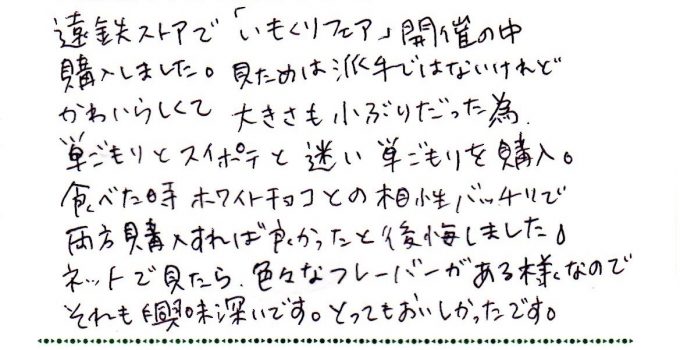 遠鉄ストアで「いもくりフェア」開催の中
購入しました。見ためは派手ではないけれど
かわいらしくて 大きさも小ぶりだった為、
巣ごもりとスイポテと迷い巣ごもりを購入。
食べた時ホワイトチョコとの相性バッチリで
両方購入すれば良かったと後悔しました。
ネットで見たら、色々なフレーバーがある様なので
それも興味深いです。とってもおいしかったです。